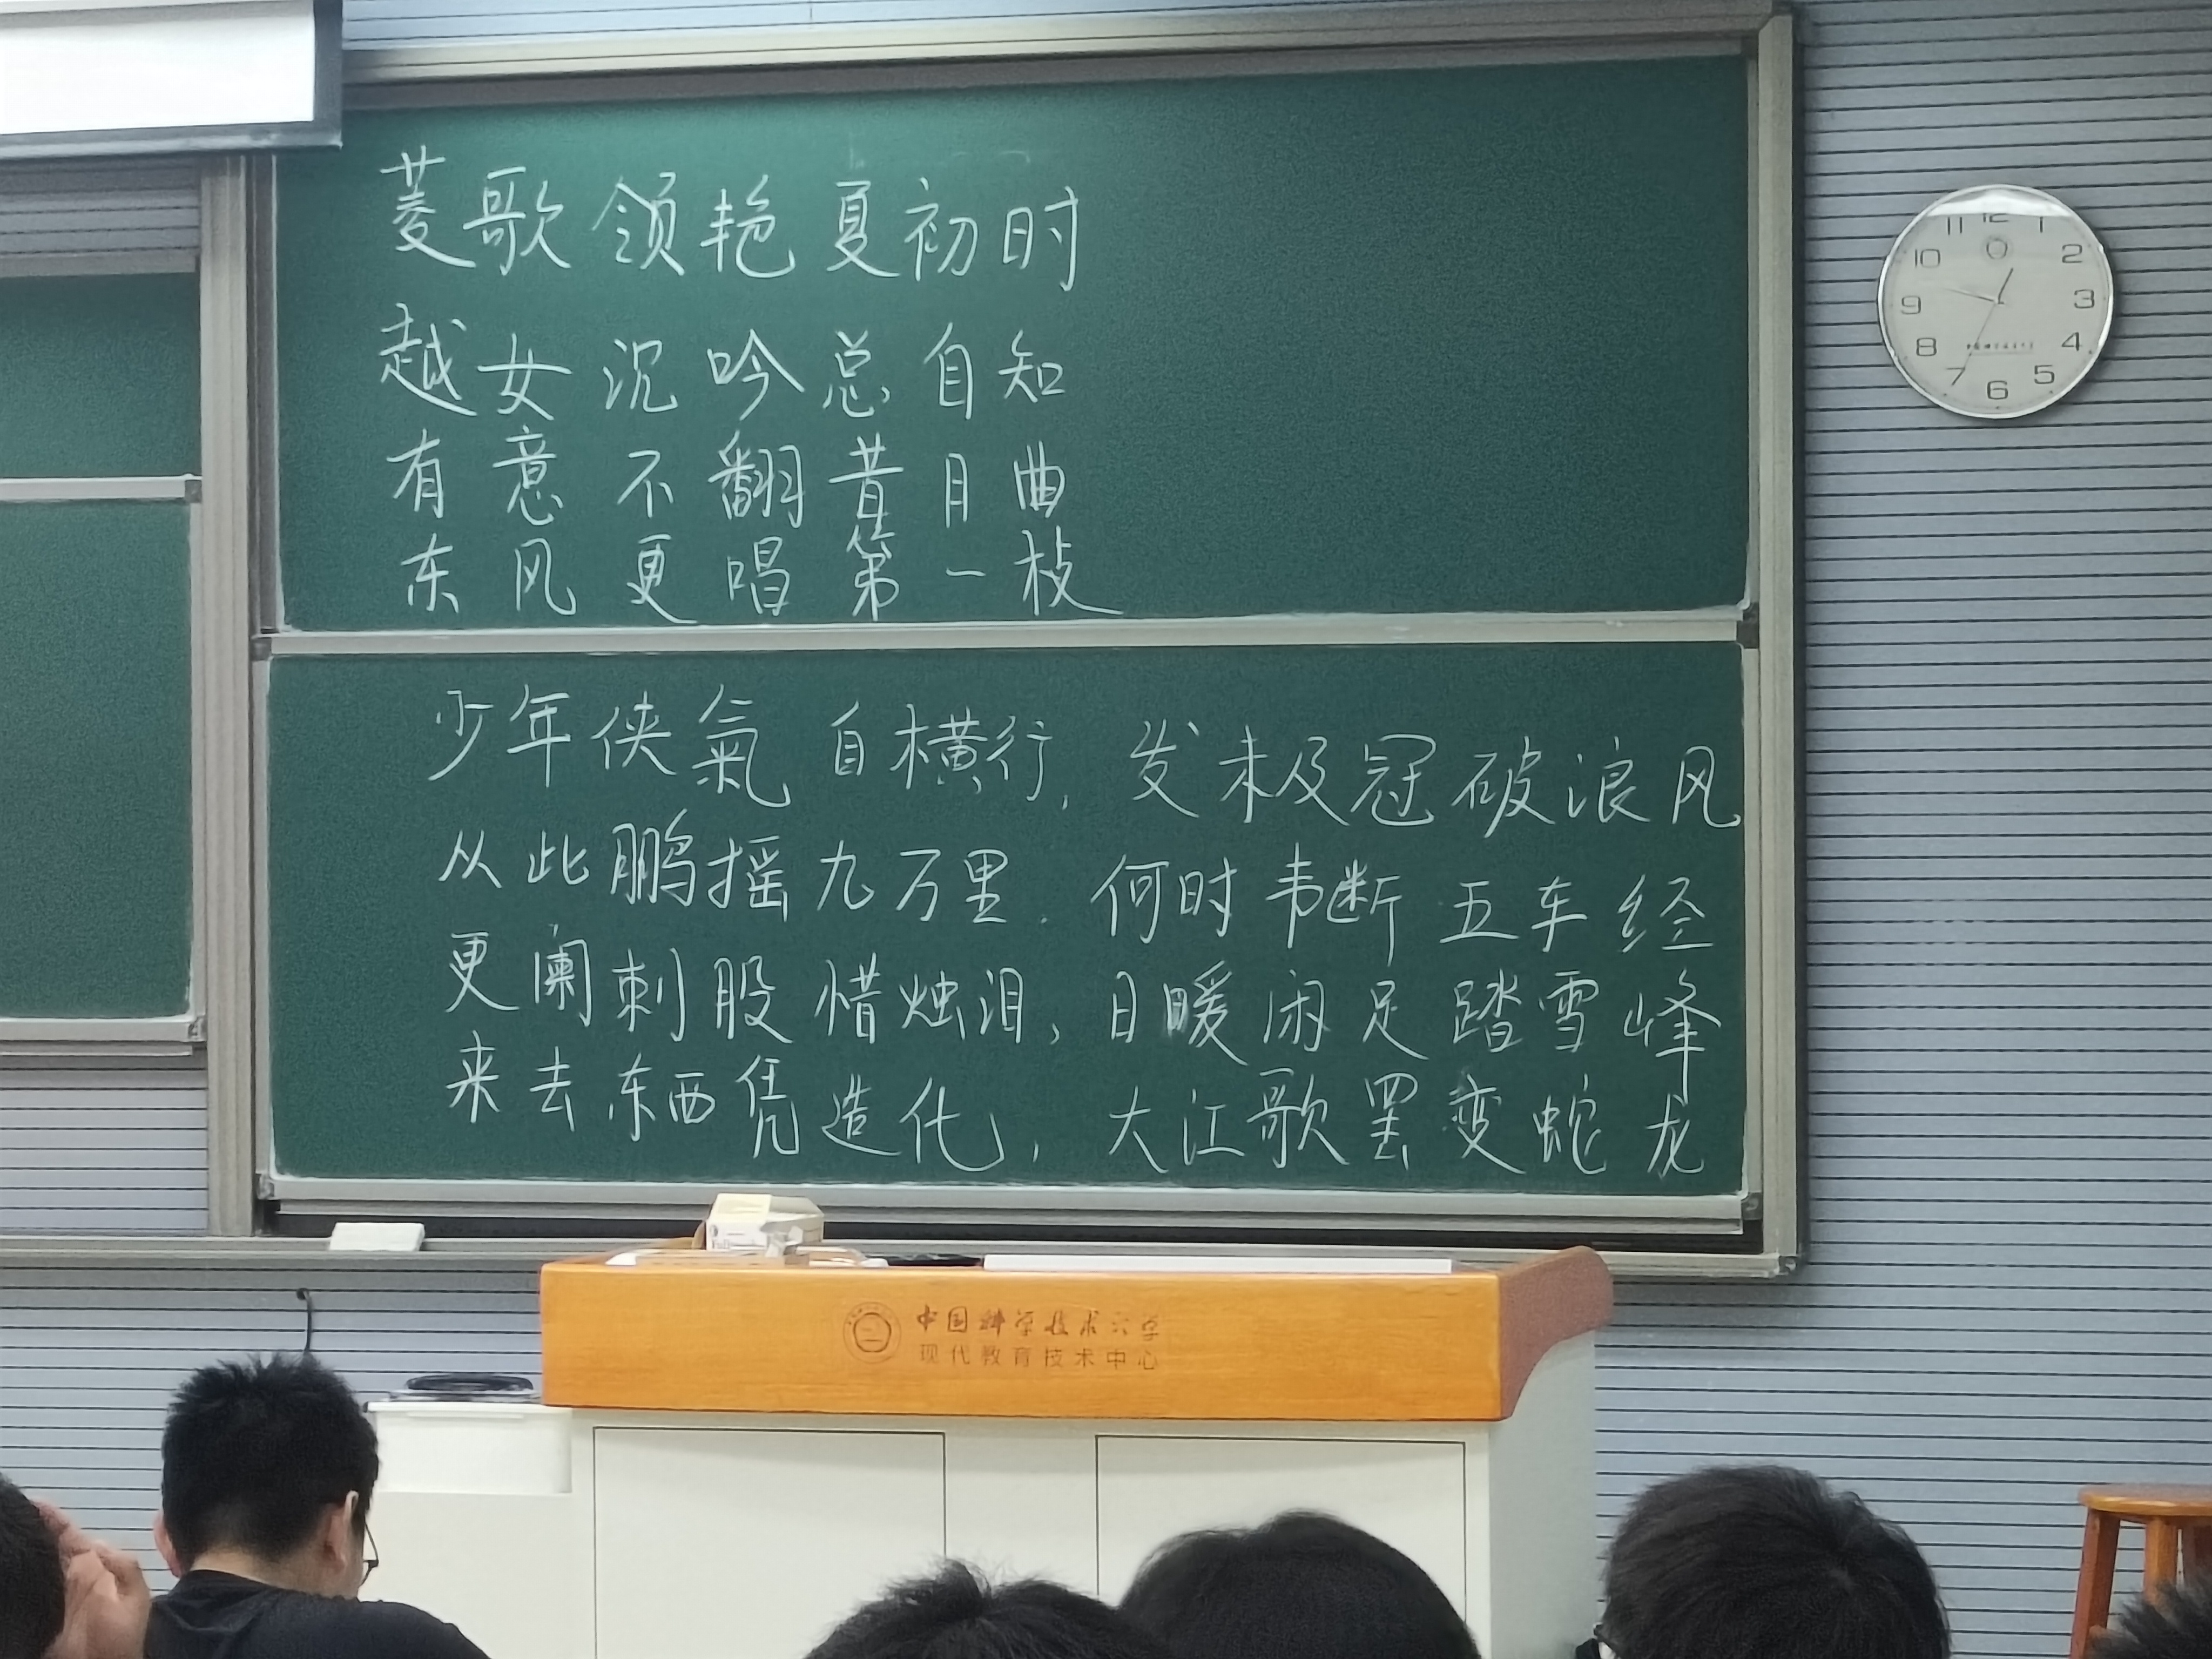 菱歌领艳夏初时
越女沉吟总自知
有意不翻昔日曲
东风更唱第一枝
少年侠氣自横行, 发未及冠破浪风
从此鹏摇九万里. 何时韦断五车经
更阑刺股惜烛泪, 日暖闲足踏雪峰
来去东西凭造化, 大江歌罢变蛇龙
11 12 1
10 2
9 3
8 4
7 6 5
中国科学技术大学
现代教育技术中心